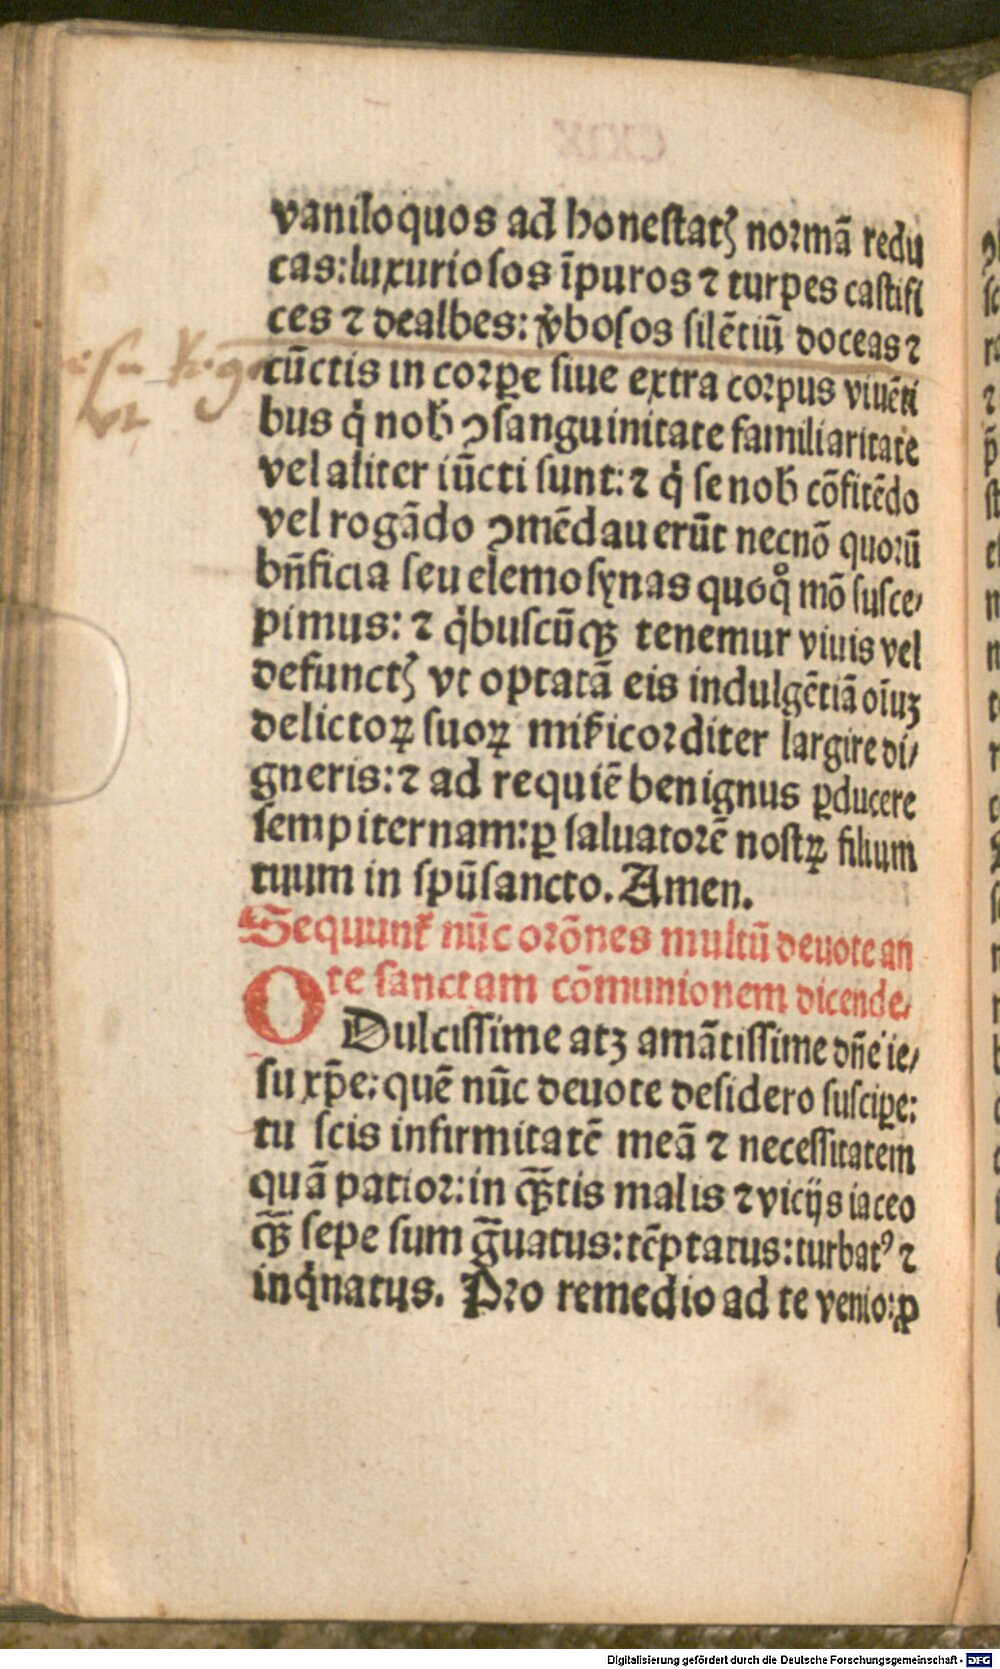 vaniloquos ad honestatꝭ normā redu
cas: luxuriosos īpuros ⁊ turpes castifi
ces ⁊ dealbes: v̄bosos silētiū doceas ⁊
cūctis in corꝑe siue extra corpus viuēti
bus qͥ nob̄ ꝯsanguinitate familiaritate
vel aliter iūcti sunt: ⁊ qͥ se nob̄ cōfitēdo
vel rogādo ꝯmēdauerūt necnō quoꝛū
bn̄ficia seu elemosynas quoqͦ mō susce⸗
pimus: ⁊ qͥbuscūqꝫ tenemur viuis vel
defunctꝭ vt optatā eis indulgētiā oīuꝫ
delictoꝝ suoꝝ mẜicoꝛditer largire di⸗
gneris: ⁊ ad requiē benignus ꝑducere
sempiternam: ꝑ saluatoꝛē nostꝝ filium
tuum in spūsancto. Amen.
Sequunt̄ nūc oꝛōnes multū deuote an
te sanctam cōmunionem dicende⸗
O Dulcissime atꝫ amātissime dn̄e ie⸗
su xp̄e: quē nūc deuote desidero suscipe:
tu scis infirmitatē meā ⁊ necessitatem
quā patioꝛ: in qꝫ̄tis malis ⁊ vicijs iaceo
qꝫ̄ sepe sum ḡuatus: tēptatus: turbatꝰ ⁊
inqͥnatus. Pꝛo remedio ad te venio: ꝑ
Digitalisierung gefördert durch die Deutsche Forschungsgemeinschaft - DFG